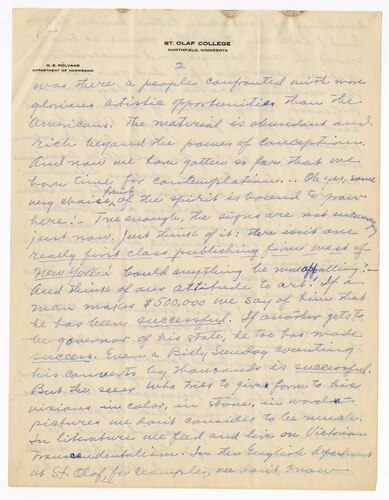 ST. OLAF COLLEGE
NORTHFIELD, MINNESOTA
O. E. RÖLVAAG
DEPARTMENT OF NORWEGIAN
2
was there a people confronted with more
glorious artistic opportunities than the
Americans. The material is abundant and
rich beyond the powers of conception.
And now we have gotten so far that we
have time for contemplation... Oh yes, some
very choice fruit of the spirit is bound to grow
here! – True enough, the signs are not encouraging
just now. Just think of it: there isn't one
really first class publishing firm west of
New York! Could anything be more appalling? –
And think of our attitude to art! If a
man makes $500,000 we say of him that
he has been successful. If another gets to
be governor of his state, he too has made
success. Even a Billy Sunday counting
his converts by thousands is successful.
But the seer who tries to give form to his
visions in color, in stone, in word
pictures we don't consider to be much.
In literature we feed and live on Victorian
Transcendentalism. In the English department
at St. Olaf, for example, we don't know